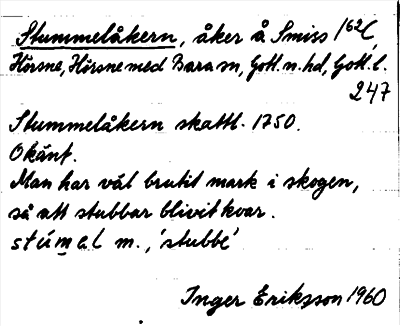 Stummelåkern, åker å Smiss 1/62 l,
Hörsne, Hörsne med Bara sn, Gotl. n. hd, Gotl. l.
247
Stummelåkern skattl. 1750.
Okänt.
Man har väl brutit mark i skogen,
så att stubbar blivit kvar.
stúmal m., 'stubbe'
Inger Eriksson 1960